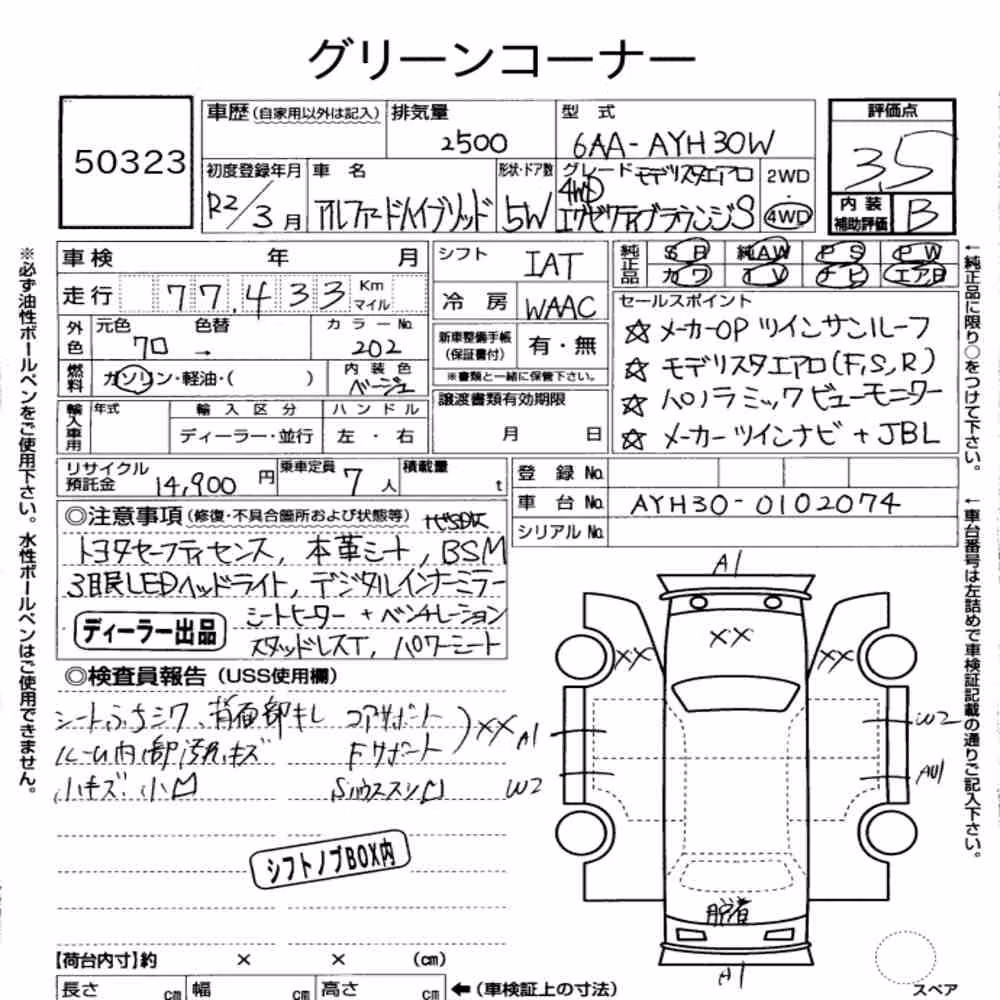 グリーンコーナー
50323
車歴(自家用以外は記入)
排気量
2500
型式
6AA-AYH30W
評価点
3.5
初度登録年月
R2/3月
車名
アルファードハイブリッド
形状・ドア数
5W
グレード モデリスタエアロ
4WD
エグゼクティブラウンジS
2WD
・
4WD
内装
補助評価
B
車検 年 月
走行 77,433 Km
マイル
シフト
IAT
冷房
WAAC
純正品
SR 純AW PS PW
カワ TV ナビ エアB
外色
元色 色替
70 →
カラーNo.
202
新車整備手帳
(保証書付)
有・無
※書類と一緒に保管下さい。
燃料
ガソリン・軽油・( )
内装色
ベージュ
輸入車用
年式
輸入区分
ディーラー・並行
ハンドル
左・右
譲渡書類有効期限
月 日
セールスポイント
☆メーカーOP ツインサンルーフ
☆モデリスタエアロ(F,S,R)
☆パノラミックビューモニター
☆メーカーツインナビ+JBL
リサイクル
預託金
14,900円
乗車定員
7人
積載量
t
登録No.
車台No.
AYH30-0102074
シリアルNo.
◎注意事項(修復・不具合箇所および状態等)
ナビSD欠
トヨタセーフティセンス, 本革シート, BSM
3眼LEDヘッドライト, デジタルインナーミラー
シートヒーター+ベンチレーション
ディーラー出品
スタッドレスT, パワーシート
◎検査員報告(USS使用欄)
シートふちシワ、背面部キレ
コアサポート
ルーム内部汚れキズ
Fサポート
XX
小キズ 小凹
Sハウススソ凹
シフトノブBOX内
A1
XX
XX
XX
A1
W2
W2
AU1
脱着
A1
スペア
【荷台内寸】約 × × (cm)
長さ cm 幅 cm 高さ cm
←(車検証上の寸法)
※必ず油性ボールペンをご使用下さい。水性ボールペンはご使用できません。
←純正品に限り○をつけて下さい。
←車台番号は左詰めで車検証記載の通りご記入下さい。